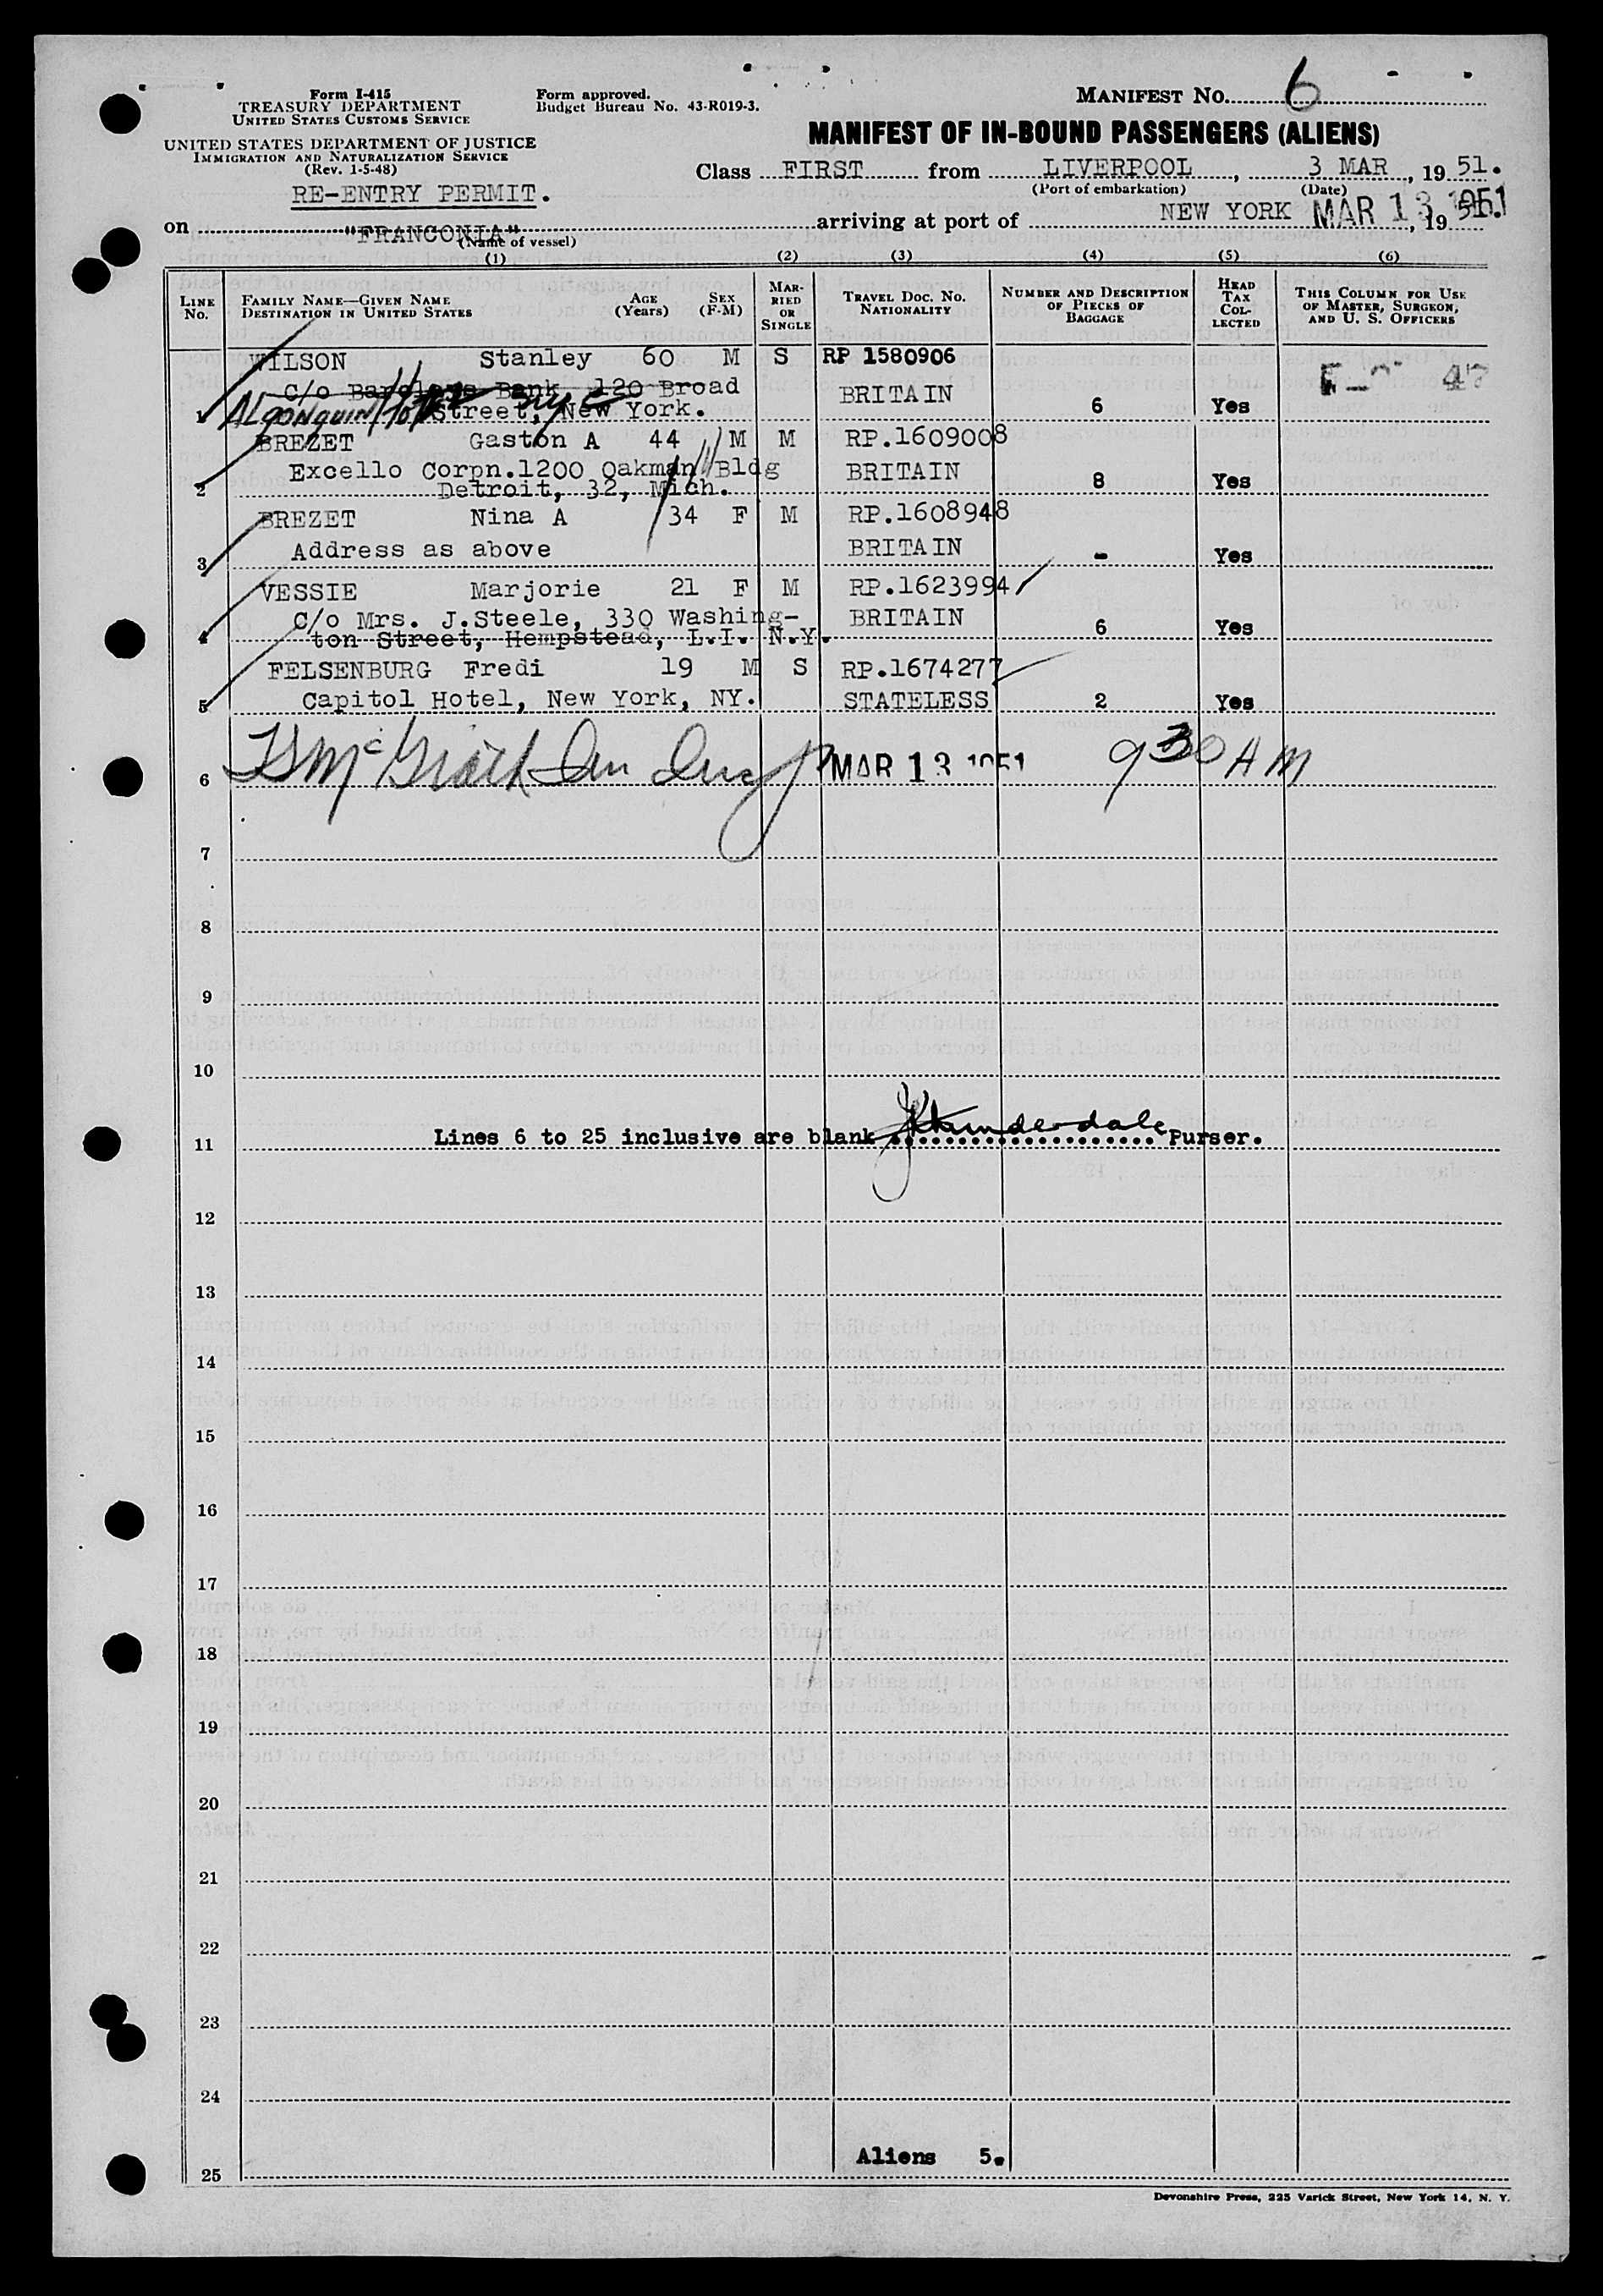 Form I-415
TREASURY DEPARTMENT
UNITED STATES CUSTOMS SERVICE
UNITED STATES DEPARTMENT OF JUSTICE
IMMIGRATION AND NATURALIZATION SERVICE
(Rev. 1-5-48)
RE-ENTRY PERMIT.
Form approved.
Budget Bureau No. 43-R019-3.
MANIFEST NO. 6
MANIFEST OF IN-BOUND PASSENGERS (ALIENS)
Class FIRST from LIVERPOOL, 3 MAR, 19 51.
(Port of embarkation) (Date)
on "FRANCONIA" arriving at port of NEW YORK MAR 13 1951, 19 51.
(Name of vessel)
(1) (2) (3) (4) (5) (6)
LINE No. FAMILY NAME—GIVEN NAME DESTINATION IN UNITED STATES AGE (Years) SEX (F-M) MARRIED OR SINGLE TRAVEL DOC. NO. NATIONALITY NUMBER AND DESCRIPTION OF PIECES OF BAGGAGE HEAD TAX COLLECTED THIS COLUMN FOR USE OF MASTER, SURGEON, AND U. S. OFFICERS
WILSON Stanley 60 M S RP 1580906
C/o Barclays Bank 120 Broad BRITAIN 47
1 ALGONQUIN Hotel NYC Street, New York. 6 Yes
BREZET Gaston A 44 M M RP.1609008
Excello Corpn.1200 Oakman Bldg BRITAIN
2 Detroit, 32, Mich. 8 Yes
BREZET Nina A 34 F M RP.1608948
Address as above BRITAIN
3 - Yes
VESSIE Marjorie 21 F M RP.1623994
C/o Mrs. J.Steele, 330 Washing- BRITAIN
4 ton Street, Hempstead, L.I. N.Y. 6 Yes
FELSENBURG Fredi 19 M S RP.1674277
5 Capitol Hotel, New York, NY. STATELESS 2 Yes
6 McGrath MAR 13 1951 9 30 AM
7
8
9
10
11 Lines 6 to 25 inclusive are blank Purser.
12
13
14
15
16
17
18
19
20
21
22
23
24
Aliens 5.
25
Devonshire Press, 225 Varick Street, New York 14, N. Y.